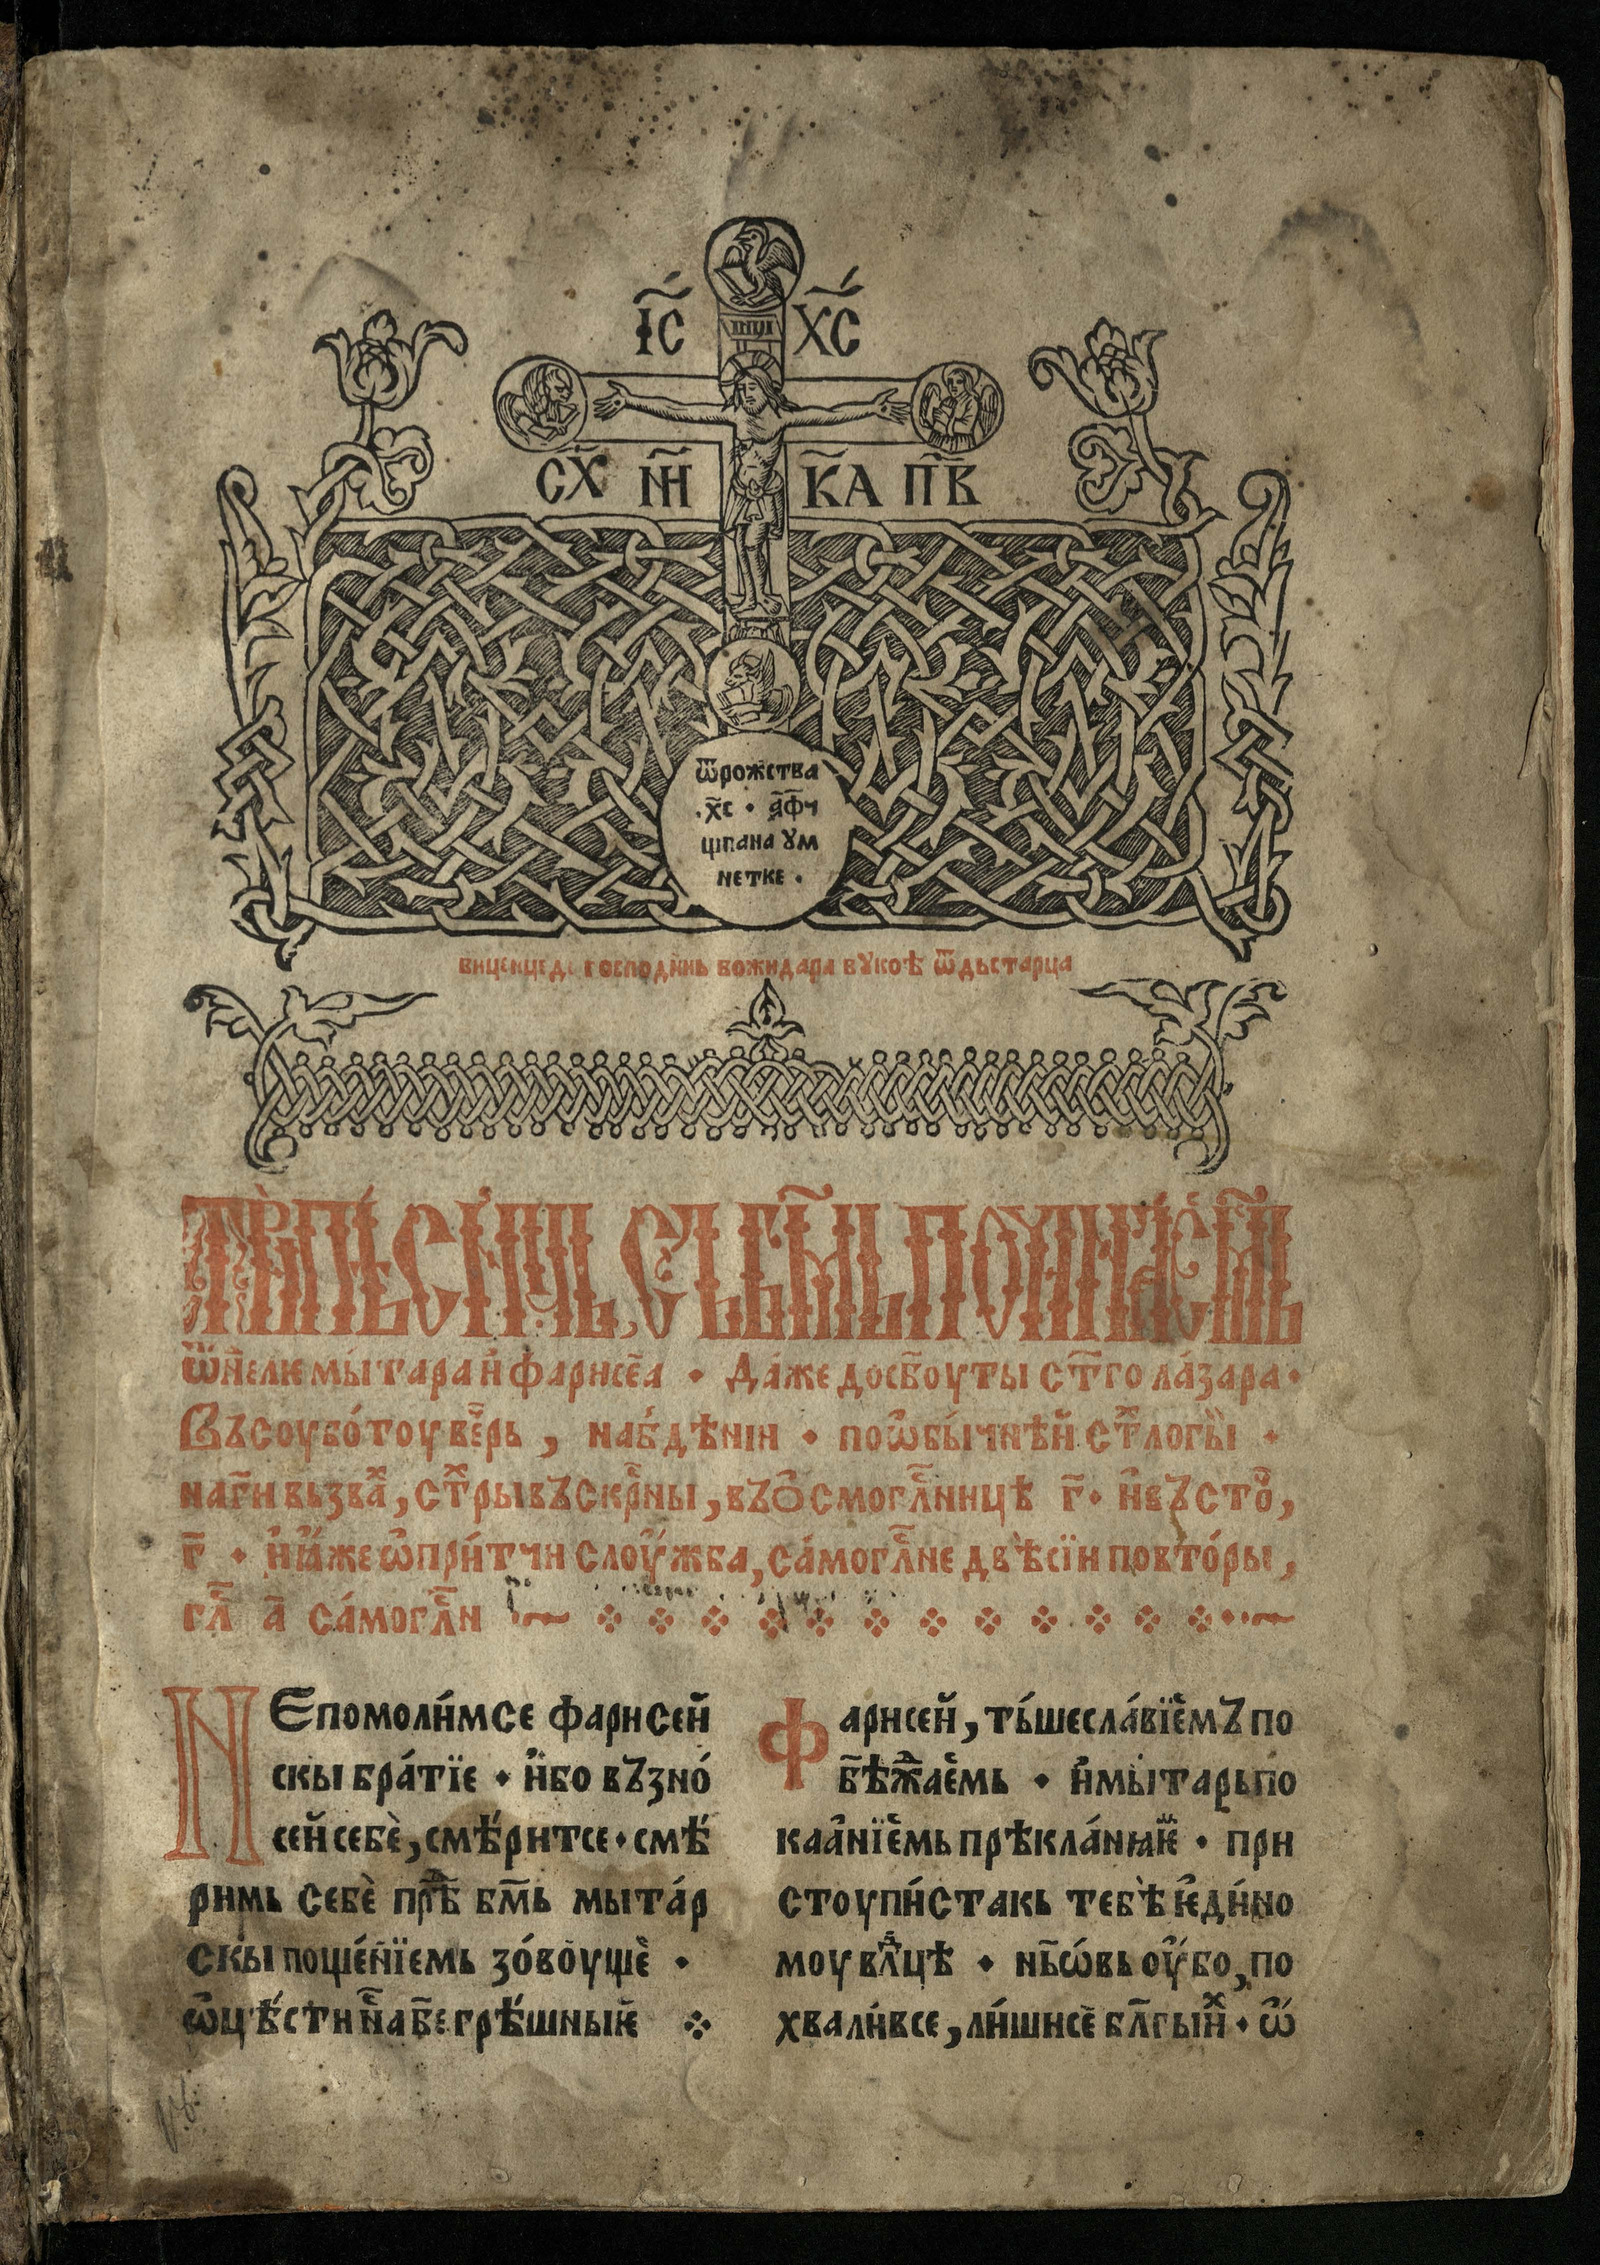 І҃С Х҃С
ІНЦІ
СХ҃ Н҃Н К҃А П҃В
ѿрожства
.х҃с · ҂аф҃ч
щпана ꙋм
нетке ·
господинь божидара вꙋкоѣ ѿдьстарца
ТРЇПѢСНЦЬ СЪБМ҃Ь ПОЧИНАЄМЬ
ѿн҃елїе мы́тара и҆ фарисе́а · Да́же досб҃оуты ст҃го ла́зара ·
Въсоубо́тоу ве҇рь , набдѣнїи · поѡ҆бы́чнѣй ст҃логы ·
наг҃и вьзва҇х, ст҃рывъскр҇ны, въѻ҆смогл҇нице г҃ · и҆въсто҇,
г҃ · и҆ꙗ҆жеѡ҆при́тчи слоу́жба, са́могл҇не двѣсїи повто́ры,
гл҇ а҃ са́могл҇н
НЄпомоли́мсе фарисей
скы бра́тїе · и҆бо възно́
сей себѐ, смѣ́ритсе · смѣ́
римь себѐ прѣ҇ бм҃ь мыта́р
скы поще́нїемь зо́воуще̏ ·
ѡ҆цѣ́сти н҇абе грѣ́шные҆
Фарисей, ты́шесла́вїе҆мъ по
бѣжа́е҆мь · и҆мы́тарьпо
каа́нїе҆мь прѣкла́нꙗе҆ · при
стоупи́стакь тебѣ ѥ҆ди́но
моу вл҇цѣ · нь҇ѡвь оу҆́бо, по
хвали́все, ли́шисе бл҃гыи҆х · ѡ҆